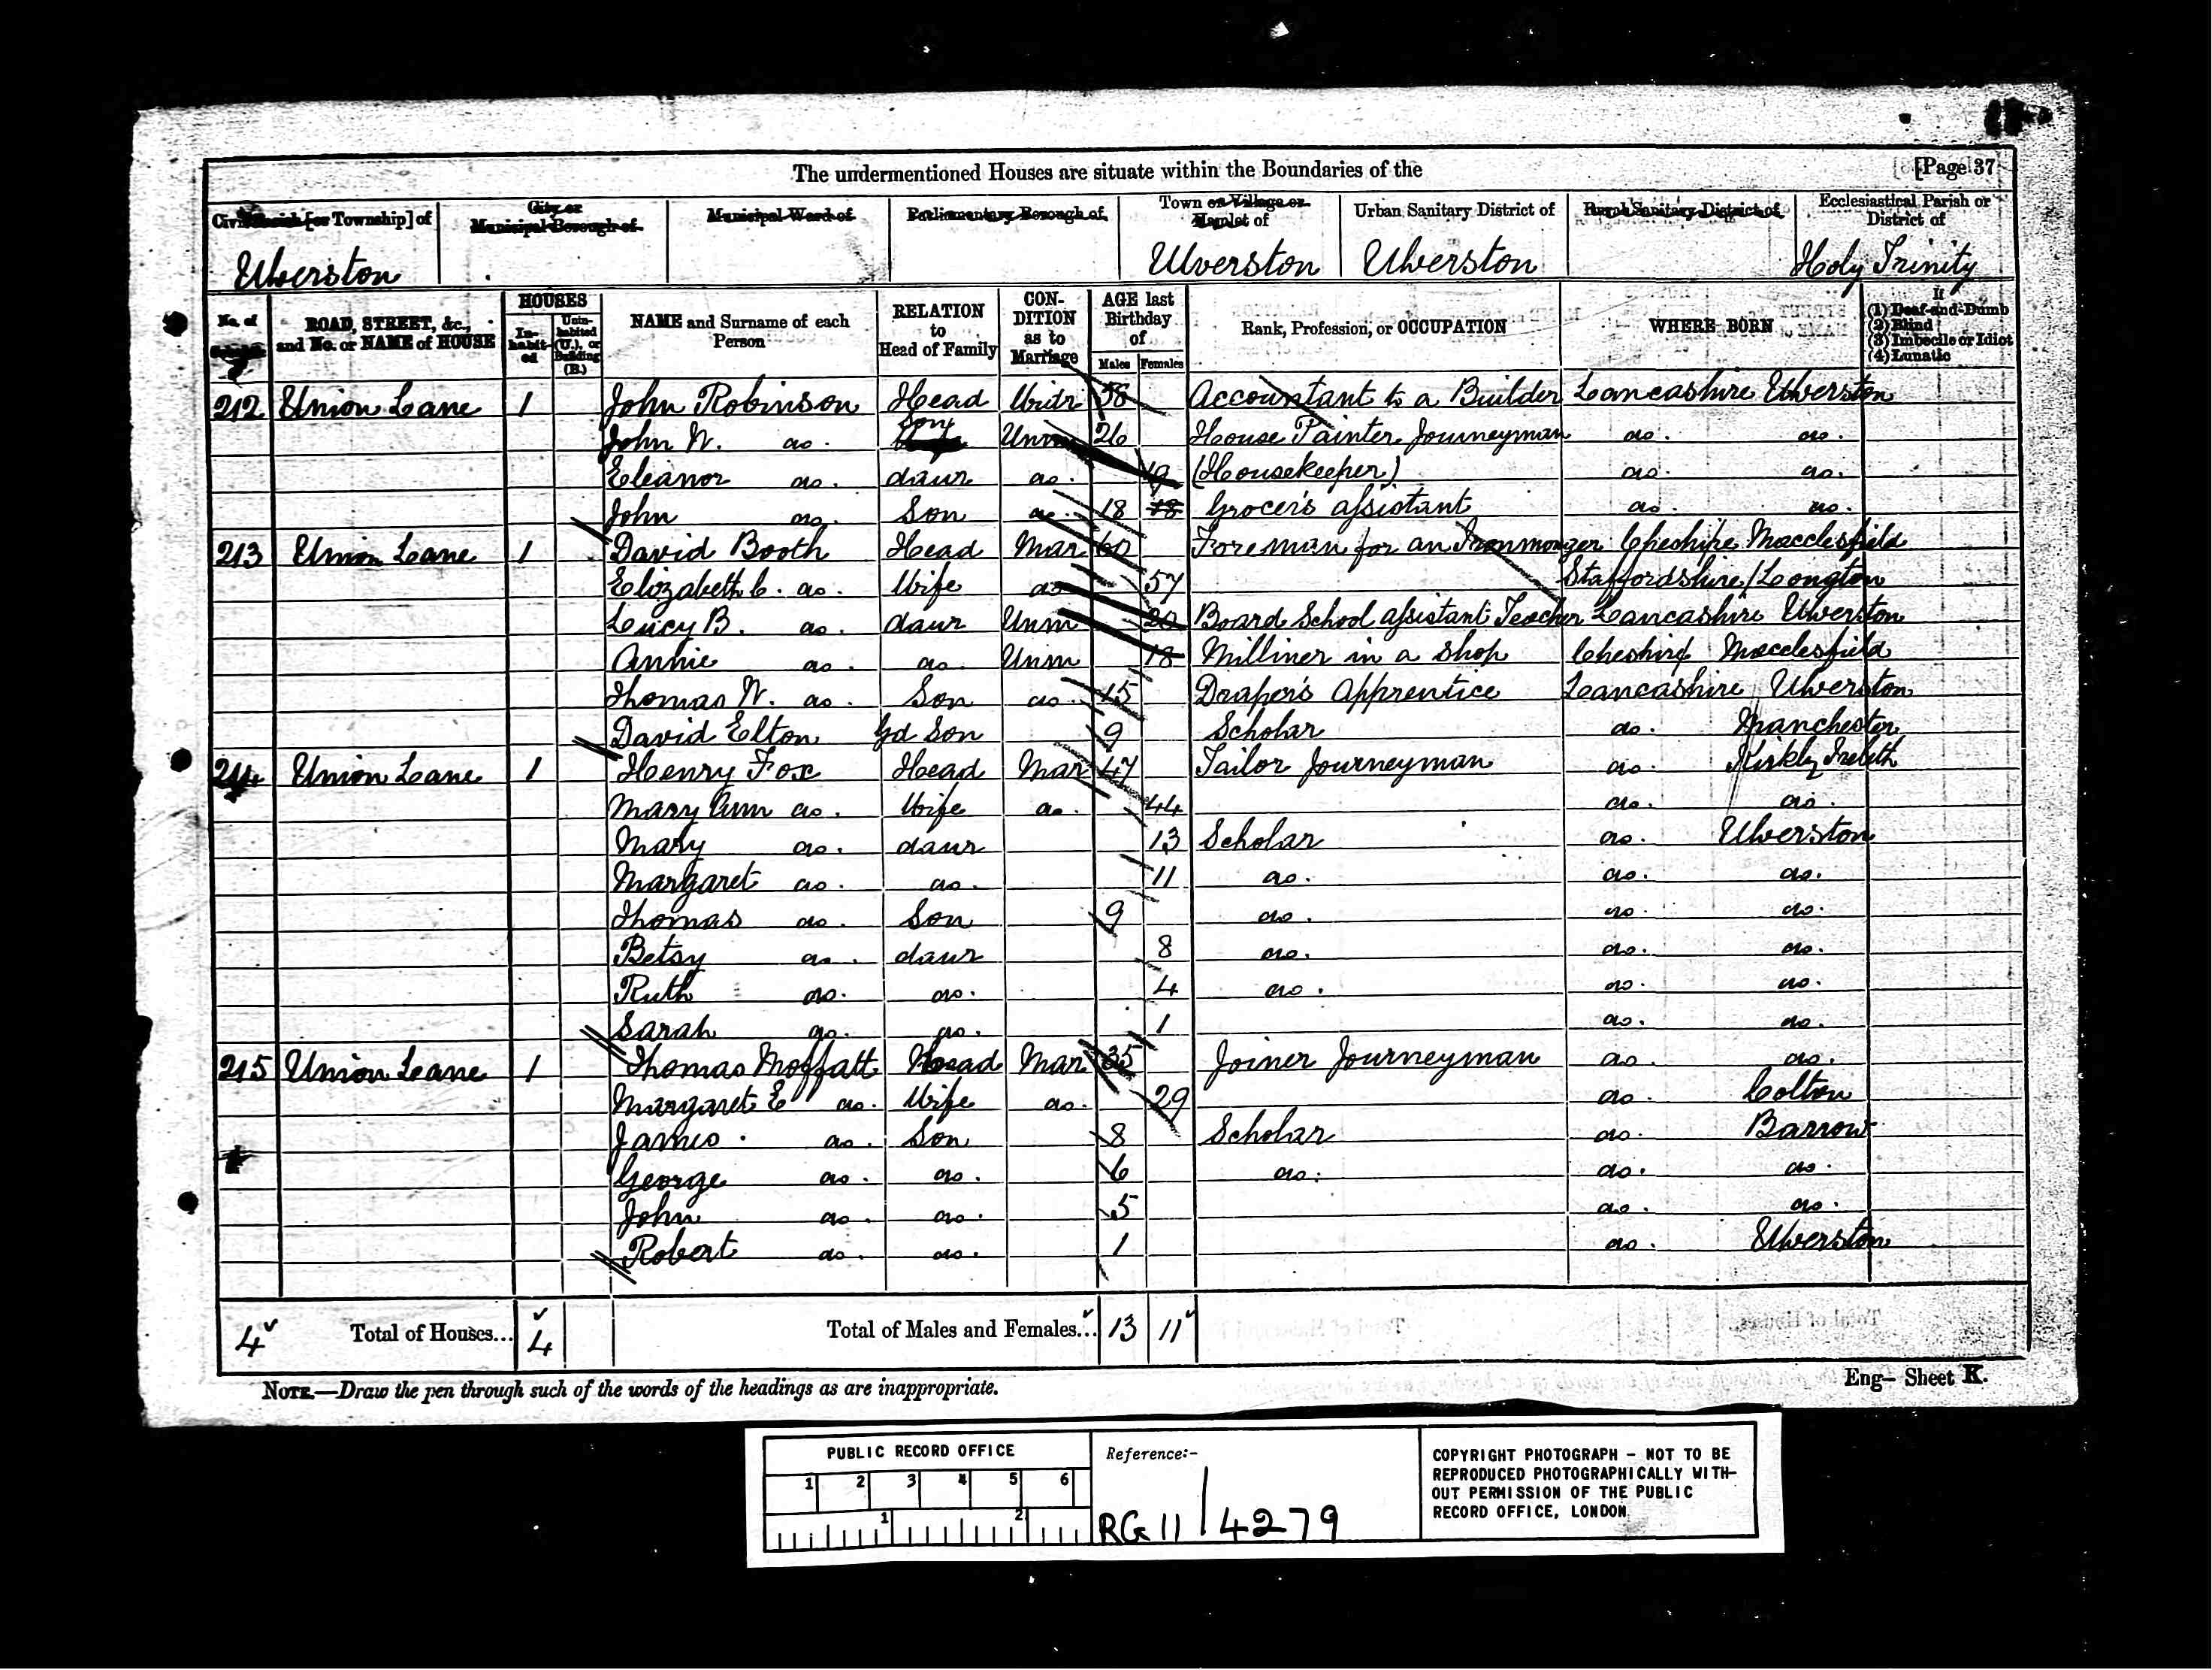 The undermentioned Houses are situate within the Boundaries of the [Page 37
Civil Parish [or Township] of City or Municipal Borough of Municipal Ward of Parliamentary Borough of Town or Village or Hamlet of Urban Sanitary District of Rural Sanitary District of Ecclesiastical Parish or District of
Ulverston Ulverston Ulverston Holy Trinity
No. of ROAD, STREET, &c., and No. or NAME of HOUSE HOUSES In-habit-ed Unin-habited (U.), or Building (B.) NAME and Surname of each Person RELATION to Head of Family CON-DITION as to Marriage AGE last Birthday of Males Females Rank, Profession, or OCCUPATION WHERE BORN If (1) Deaf-and-Dumb (2) Blind (3) Imbecile or Idiot (4) Lunatic
212 Union Lane 1 John Robinson Head Widr 58 Accountant to a Builder Lancashire Ulverston
John W. do. Son Unm 26 House Painter Journeyman do. do.
Eleanor do. daur do. 19 (Housekeeper) do. do.
John do. Son do. 18 18 Grocer's assistant do. do.
213 Union Lane 1 David Booth Head Mar 60 Foreman for an Ironmonger Cheshire Macclesfield
Elizabeth C. do. Wife do 57 Staffordshire Longton
Lucy B. do. daur Unm 20 Board School assistant Teacher Lancashire Ulverston
Annie do. do. Unm 18 Milliner in a shop Cheshire Macclesfield
Thomas W. do. Son do. 15 Draper's Apprentice Lancashire Ulverston
David Elton Gd Son 9 Scholar do. Manchester
214 Union Lane 1 Henry Fox Head Mar 47 Tailor Journeyman do. Kirkby Ireleth
Mary Ann do. Wife do. 44 do. do.
Mary do. daur 13 Scholar do. Ulverston
Margaret do. do. 11 do. do. do.
Thomas do. Son 9 do. do. do.
Betsy do. daur 8 do. do. do.
Ruth do. do. 4 do. do. do.
Sarah do. do. 1 do. do.
215 Union Lane 1 Thomas Moffatt Head Mar 35 Joiner Journeyman do. do.
Margaret E do. Wife do. 29 do. Colton
James do. Son 8 Scholar do. Barrow
George do. do. 6 do. do. do.
John do. do. 5 do. do.
Robert do. do. 1 do. Ulverston
4 Total of Houses... 4 Total of Males and Females... 13 11
NOTE.—Draw the pen through such of the words of the headings as are inappropriate. Eng– Sheet K.
PUBLIC RECORD OFFICE
1 2 3 4 5 6
1 2
Reference:-
RG 11 / 4279
COPYRIGHT PHOTOGRAPH – NOT TO BE
REPRODUCED PHOTOGRAPHICALLY WITH-
OUT PERMISSION OF THE PUBLIC
RECORD OFFICE, LONDON